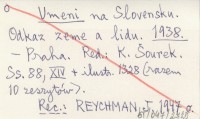 Umeni na Slovensku.
Odkaz zeme a lidu. 1938.
— Praha. Red: K. Šourek.
Ss. 88, XIV + ilustr. 1328 (razem
10 zeszytów).
Rec.: REYCHMAN, J. 1947